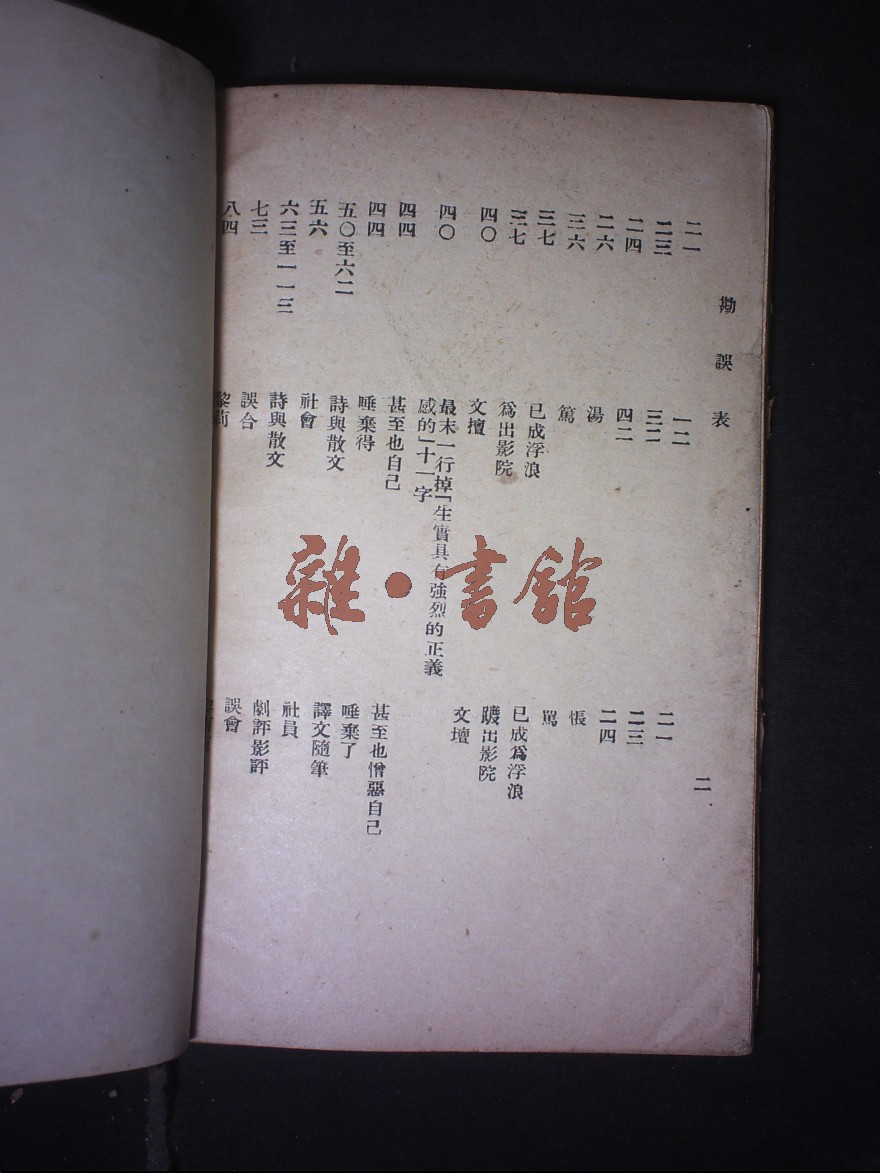 勘誤表 二
二一 一二 二一
二三 三二 二三
二四 四二 二四
二六 湯 悵
三六 篤 罵
三七 已成浮浪 已成爲浮浪
三七 爲出影院 踱出影院
四〇 文擅 文壇
四〇 最末一行掉「生實具有強烈的正義
感的」十一字
四四 甚至也自己 甚至也憎惡自己
四四 唾棄得 唾棄了
五〇至六二 詩與散文 譯文隨筆
五六 社會 社員
六三至一一三 詩與散文 劇評影評
七三 誤合 誤會
八四 黎莉
雜·書館